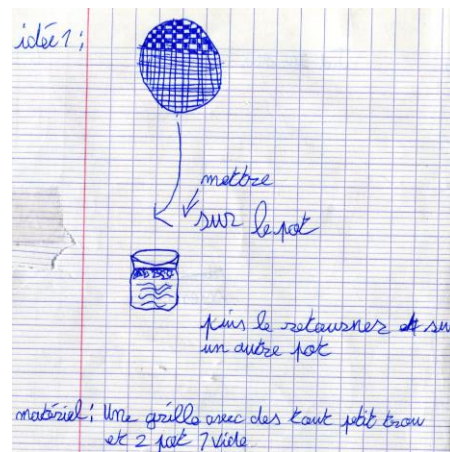 idée 1 :
mettre
sur le pot
puis le retourner et su
un autre pot
matériel : Une grille avec des tout petit trou
et 2 pot 1 vide